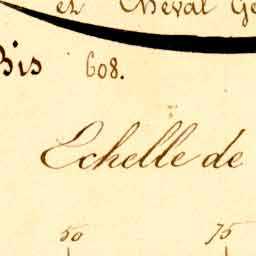 et Cheval Ge
Bis 608.
Echelle de
50 75